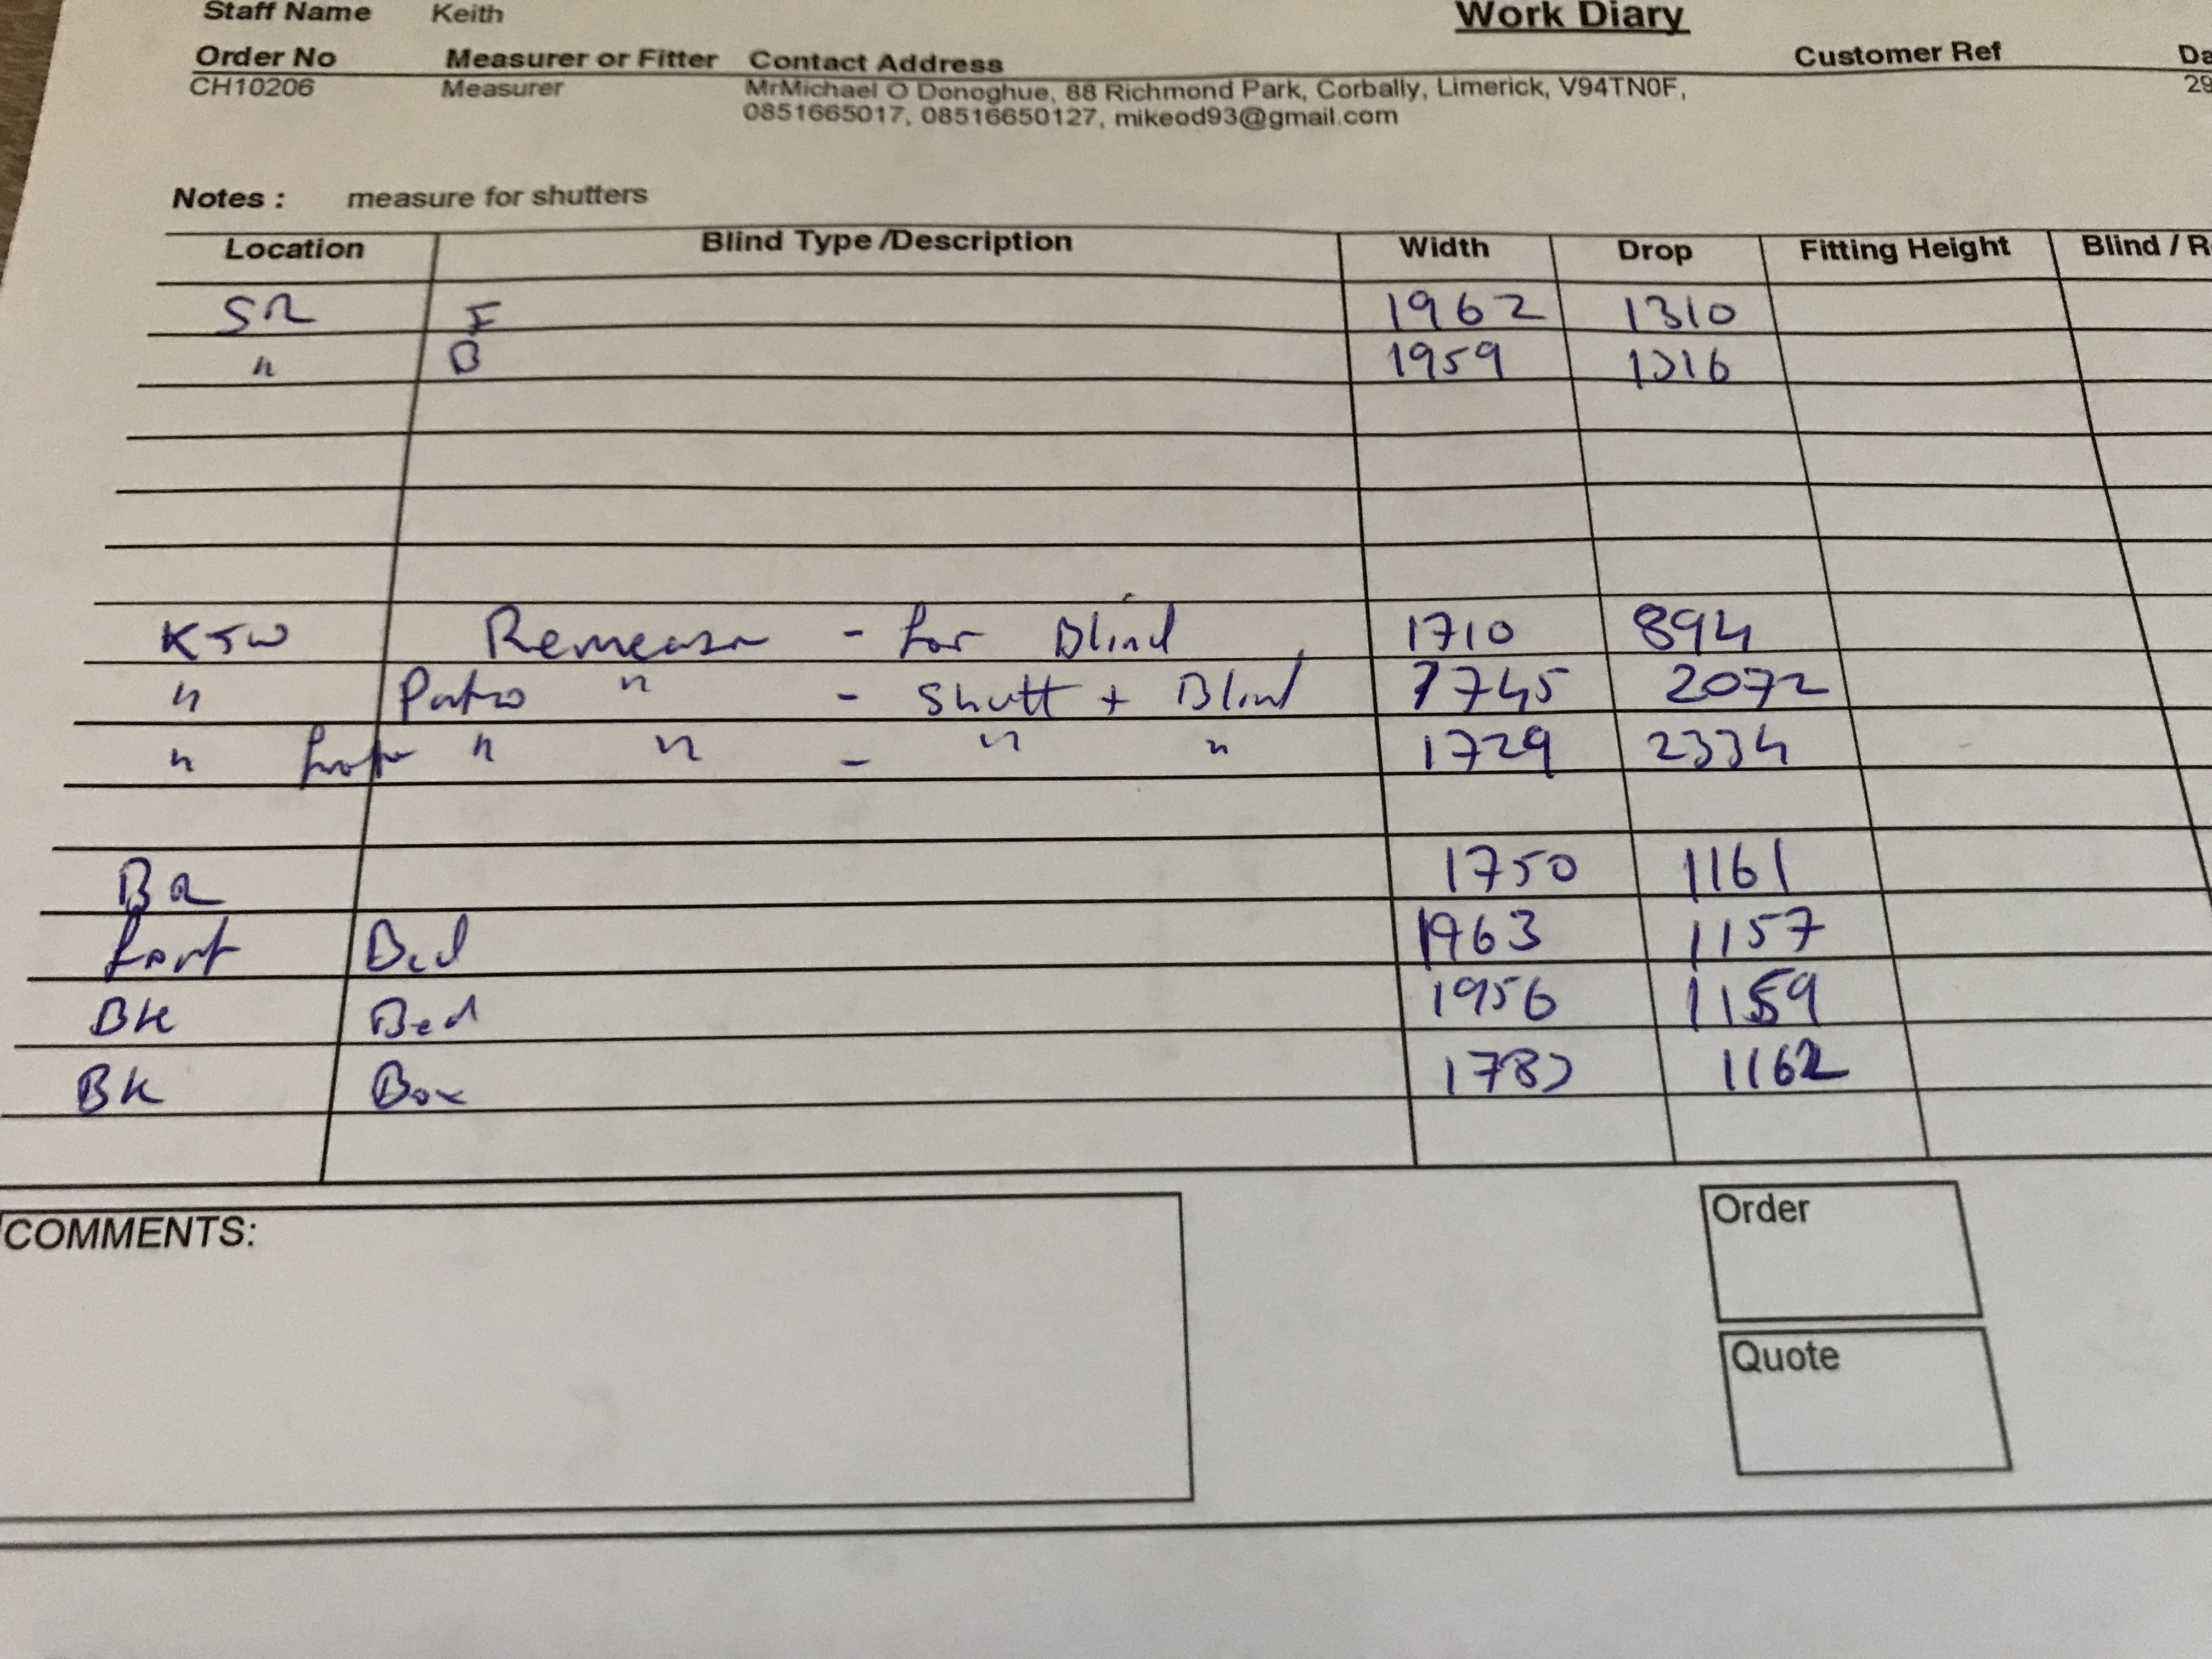 Staff Name Keith Work Diary
Order No Measurer or Fitter Contact Address Customer Ref Da
CH10206 Measurer MrMichael O Donoghue, 88 Richmond Park, Corbally, Limerick, V94TN0F, 29
0851665017, 08516650127, mikeod93@gmail.com
Notes : measure for shutters
Location Blind Type /Description Width Drop Fitting Height Blind / R
SR F 1962 1310
" B 1959 1316
Remeasure - for Blind 1710 894
" Patio " - Shutt + Blind 1745 2072
" " " - " " 1729 2334
BR 1750 1161
Front Bed 1963 1157
BK Bed 1956 1159
BK Box 1162
COMMENTS:
Order
Quote